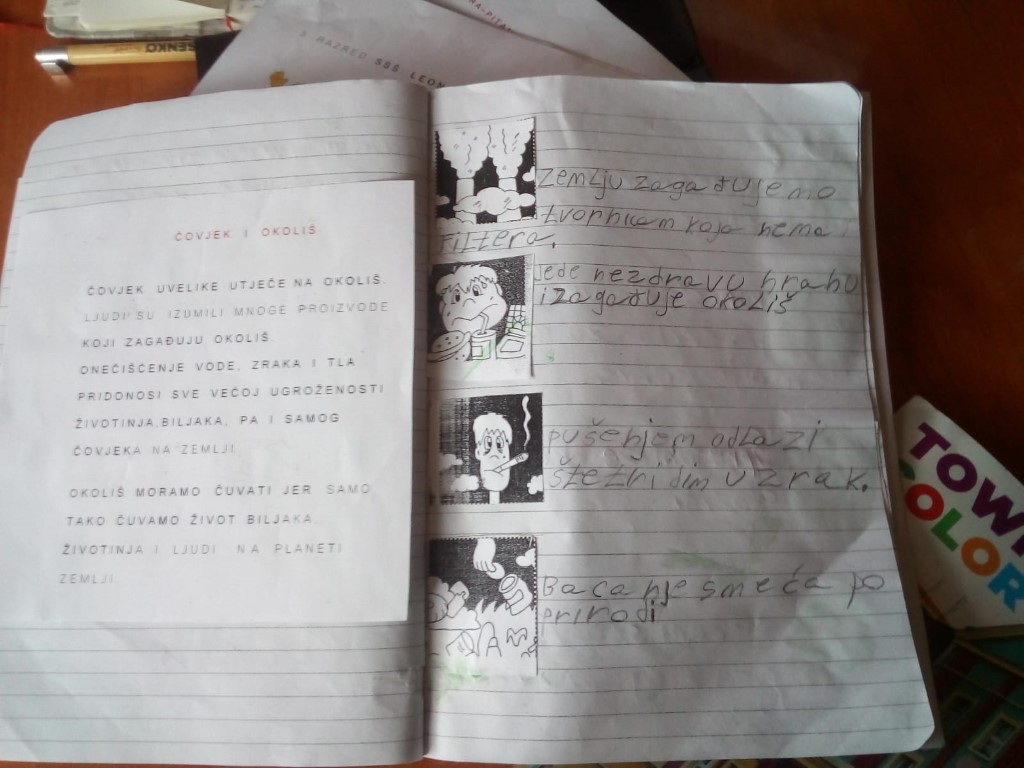 3. RAZRED SŠŠ LEON
ČOVJEK I OKOLIŠ
ČOVJEK UVELIKE UTJEČE NA OKOLIŠ.
LJUDI SU IZUMILI MNOGE PROIZVODE
KOJI ZAGAĐUJU OKOLIŠ.
ONEČIŠĆENJE VODE, ZRAKA I TLA
PRIDONOSI SVE VEĆOJ UGROŽENOSTI
ŽIVOTINJA,BILJAKA, PA I SAMOG
ČOVJEKA NA ZEMLJI.
OKOLIŠ MORAMO ČUVATI JER SAMO
TAKO ČUVAMO ŽIVOT BILJAKA,
ŽIVOTINJA I LJUDI NA PLANETI
ZEMLJI.
zemlju zagađujemo
tvornicam koja nema
filtera.
jede nezdravu hrabu
i zagađuje okoliš
pušenjem odlazi
štetni dim u zrak.
Bacanje smeća po
prirodi
TOW
COLOR